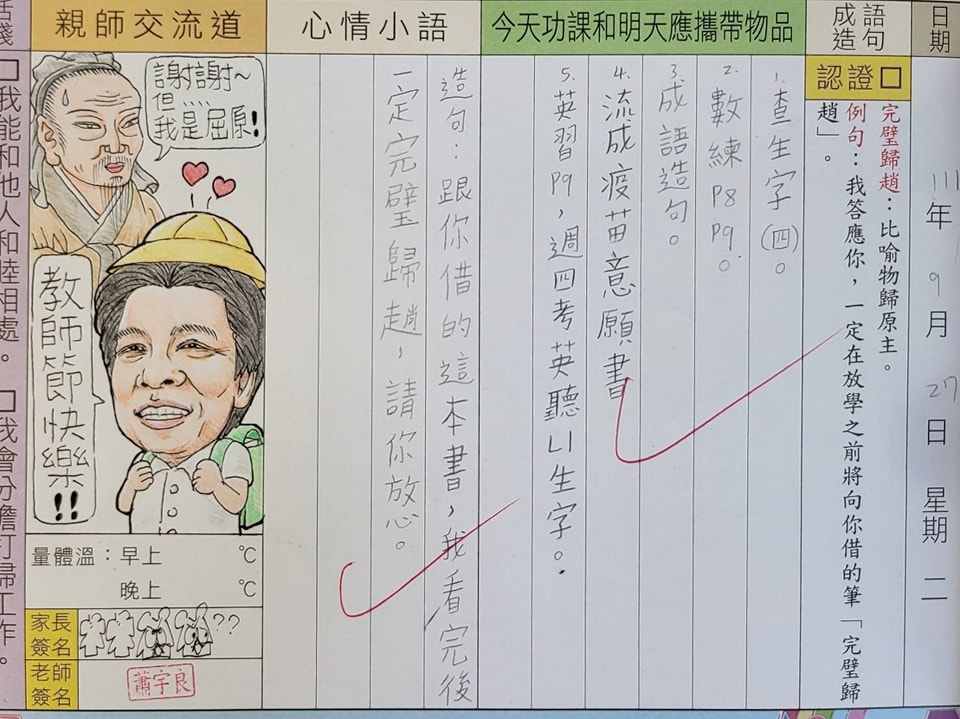 日期
111年9月27日 星期二
成語造句
認證□
完璧歸趙：比喻物歸原主。
例句：我答應你，一定在放學之前將向你借的筆「完璧歸
趙」。
今天功課和明天應攜帶物品
1.查生字(四)。
2.數練P8 P9。
3.成語造句。
4.流成疫苗意願書
5.英習P9，週四考英聽L1生字。
心情小語
造句：跟你借的這本書，我看完後
一定完璧歸趙，請你放心。
親師交流道
謝謝~
但……
我是屈原!
教師節快樂!!
量體溫：早上 ℃
晚上 ℃
家長簽名
??
老師簽名
蕭宇良
□我能和他人和睦相處。 □我會分擔打掃工作。